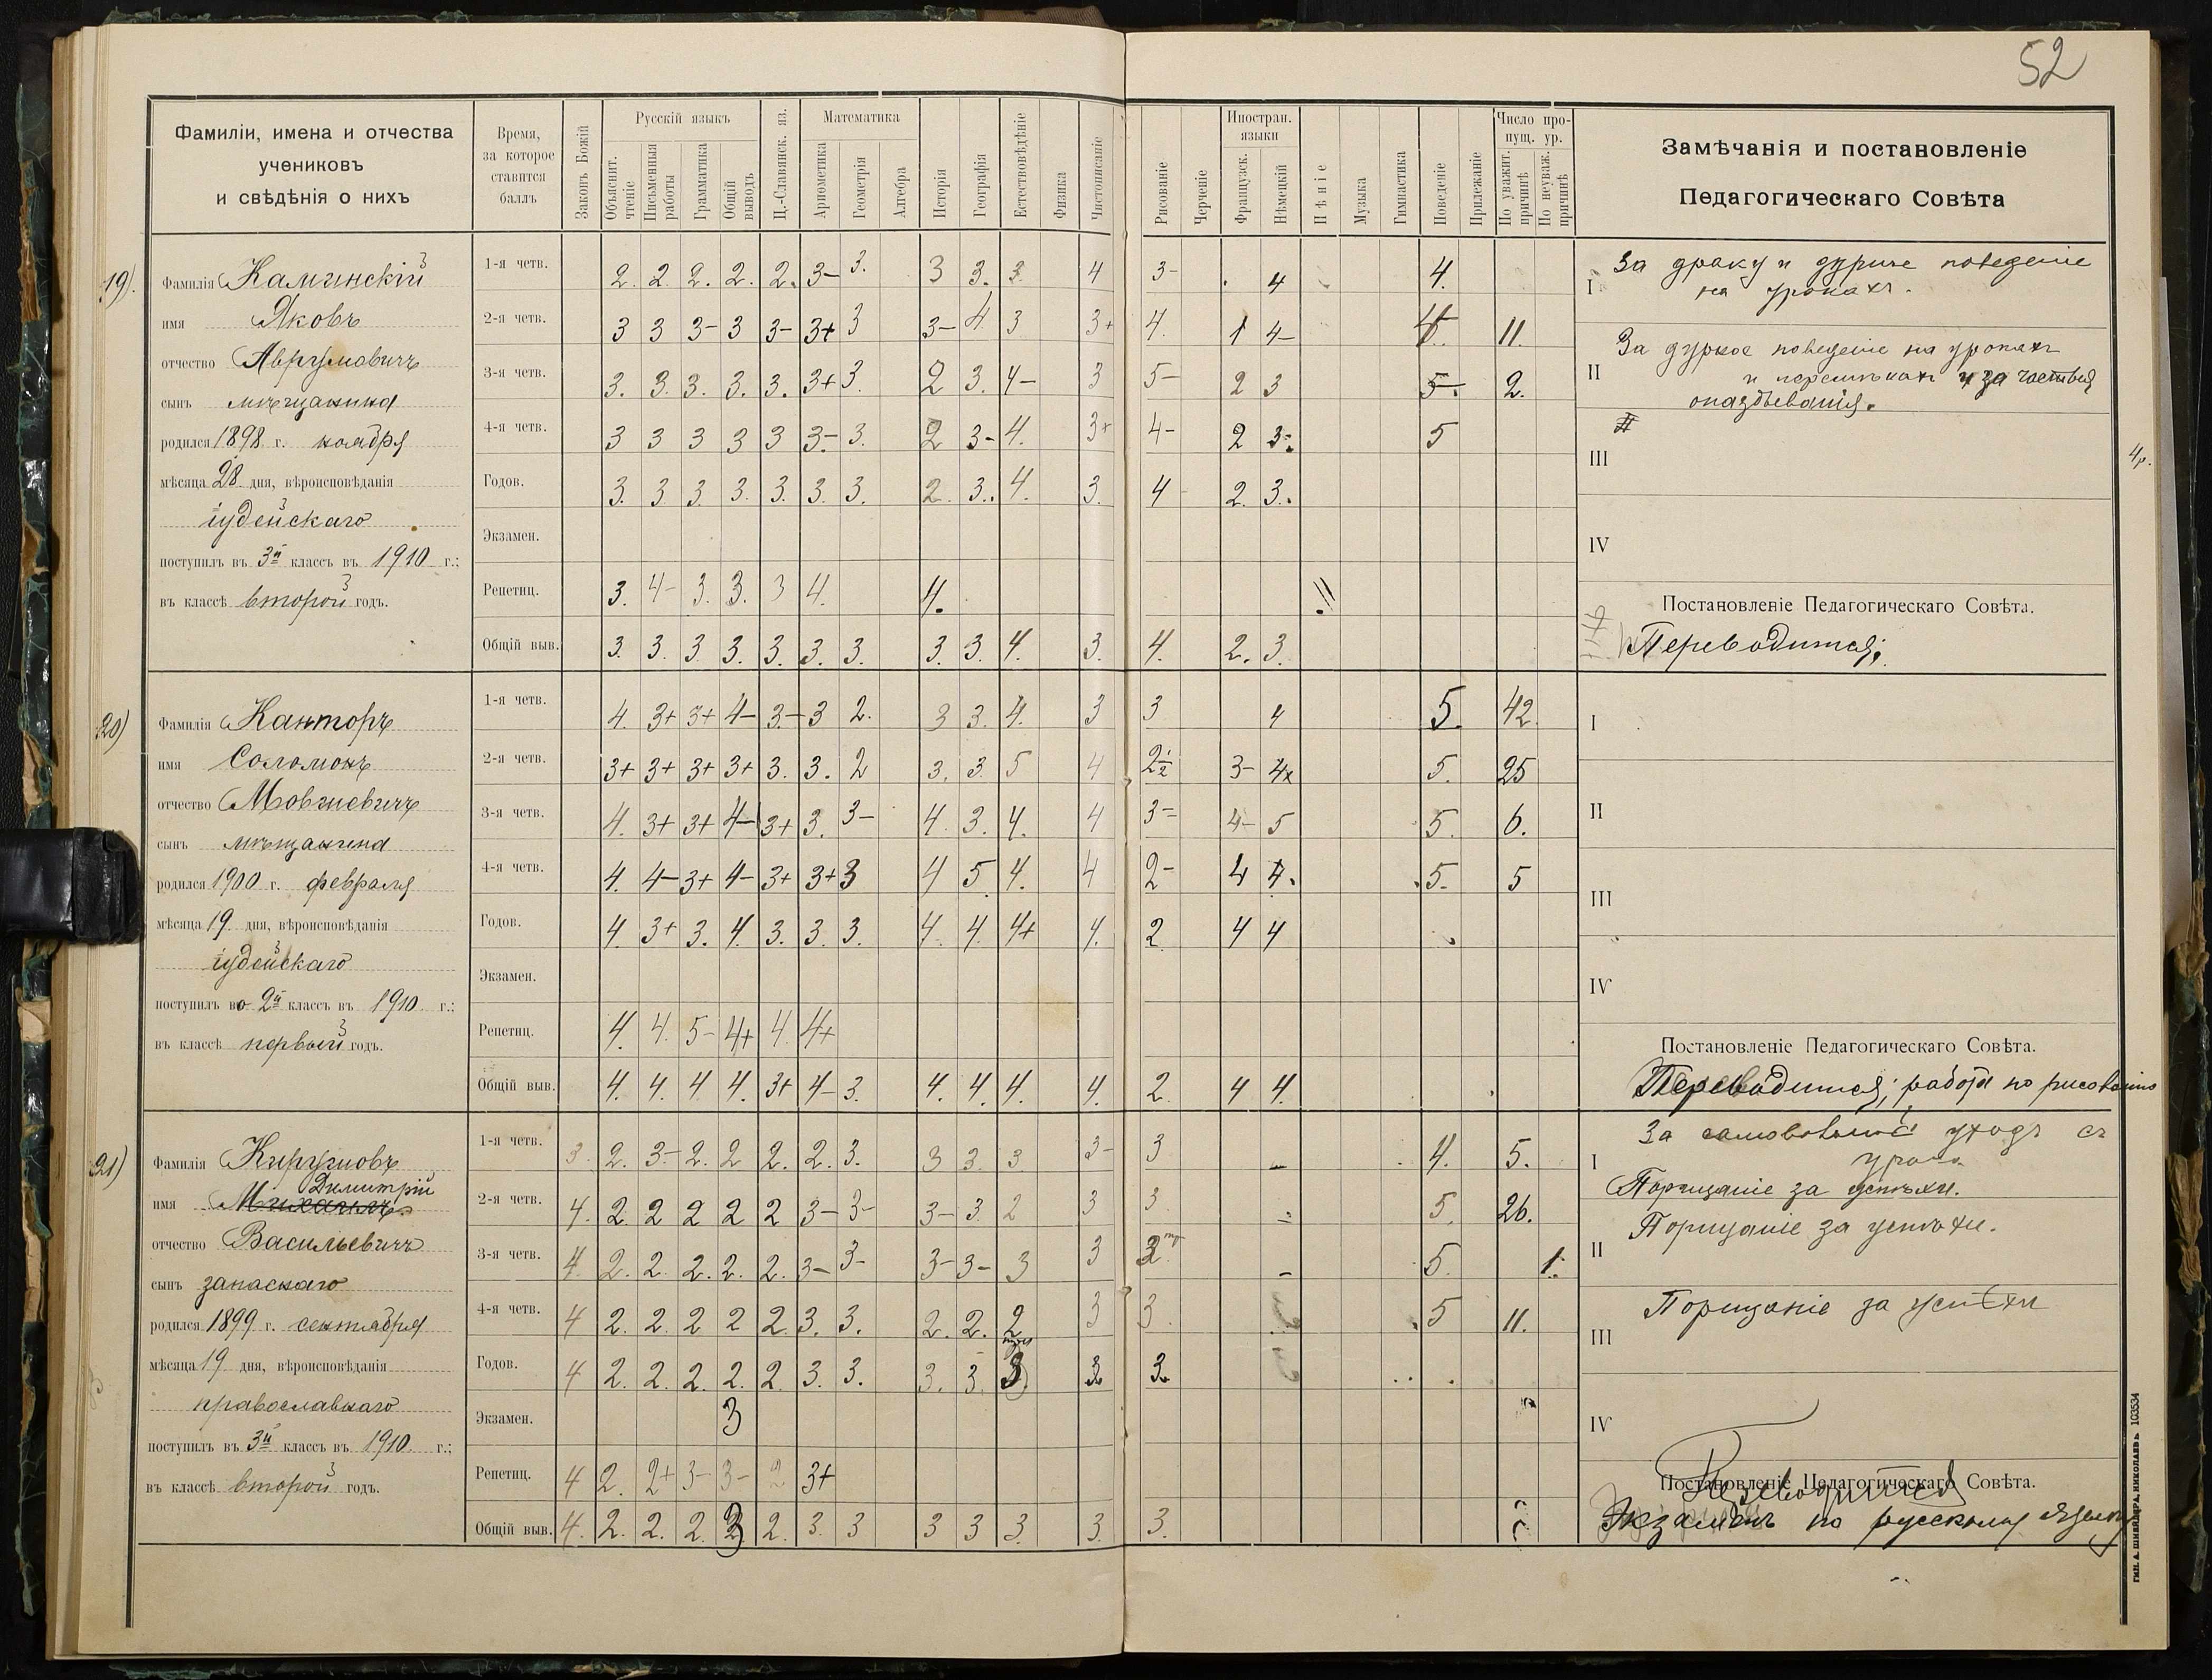 52
Фамиліи, имена и отчества
учениковъ
и свѣдѣнія о нихъ
Время,
за которое
ставится
баллъ
Законъ Божій
Русскій языкъ
Объяснит.
чтеніе
Письменныя
работы
Грамматика
Общій
выводъ
Ц.-Славянск. яз.
Математика
Ариѳметика
Геометрія
Алгебра
Исторія
Географія
Естествовѣдѣніе
Физика
Чистописаніе
Рисованіе
Черченіе
Иностран.
языки
Французск.
Нѣмецкій
Пѣніе
Музыка
Гимнастика
Поведеніе
Прилежаніе
Число про-
пущ. ур.
По уважит.
причинѣ
По неуваж.
причинѣ
Замѣчанія и постановленіе
Педагогическаго Совѣта
19).
Фамилія Каминскій
имя Яковъ
отчество Аврумовичъ
сынъ мѣщанина
родился 1898 г. ноября
мѣсяца 28 дня, вѣроисповѣданія
іудейскаго
поступилъ въ 3й классъ въ 1910 г.;
въ классѣ второй годъ.
1-я четв. 2. 2. 2. 2. 2. 3- 3. 3 3. 3. 4 3- 4 4.
2-я четв. 3 3 3- 3 3- 3+ 3 3- 4. 3 3+ 4. 1 4- 11.
3-я четв. 3. 3. 3. 3. 3. 3+ 3. 2 3. 4- 3 5- 2 3 5-. 2.
4-я четв. 3 3 3 3 3 3-. 3. 2 3- 4. 3+ 4- 2 3-. 5
Годов. 3. 3. 3. 3. 3. 3. 3. 2. 3.. 4. 3. 4- 2. 3.
Экзамен.
Репетиц. 3. 4- 3. 3. 3 4. 4.
Общій выв. 3. 3. 3. 3. 3. 3. 3. 3. 3. 4. 3. 4. 2. 3.
I За драку и дурное поведеніе
на урокахъ.
II За дурное поведеніе на урокахъ
и перемѣнахъ и за частыя
опаздыванія.
III
IV
4р.
Постановленіе Педагогическаго Совѣта.
Переводится;
20)
Фамилія Канторъ
имя Соломонъ
отчество Мовшевичъ
сынъ мѣщанина
родился 1900 г. февраля
мѣсяца 19 дня, вѣроисповѣданія
іудейскаго
поступилъ во 2й классъ въ 1910 г.;
въ классѣ первый годъ.
1-я четв. 4. 3+ 3+ 4- 3.- 3 2. 3 3. 4. 3 3 4 5. 42.
2-я четв. 3+ 3+ 3+ 3+ 3. 3. 2 3. 3. 5 4 2½ 3- 4 5. 25
3-я четв. 4. 3+ 3+ 4- 3+ 3. 3- 4. 3. 4. 4 3= 4- 5 5. 6.
4-я четв. 4. 4- 3+ 4- 3+ 3+ 3 4 5. 4. 4 2- 4 4. 5. 5
Годов. 4. 3+ 3. 4. 3. 3. 3. 4. 4. 4+ 4. 2. 4 4
Экзамен.
Репетиц. 4. 4. 5- 4+ 4. 4+
Общій выв. 4. 4. 4. 4. 3+ 4- 3. 4. 4. 4. 4. 2. 4 4.
I
II
III
IV
Постановленіе Педагогическаго Совѣта.
Переводится; работа по рисованію
21)
Фамилія Киргизовъ
Димитрій
имя Михаилъ
отчество Васильевичъ
сынъ запаснаго
родился 1899 г. сентября
мѣсяца 19 дня, вѣроисповѣданія
православнаго
поступилъ въ 3й классъ въ 1910 г.;
въ классѣ второй годъ.
1-я четв. 3. 2. 3- 2. 2 2. 2. 3. 3 3. 3 3- 3 - 4. 5.
2-я четв. 4. 2. 2 2 2 2 3- 3- 3- 3. 2 3 3. 5. 26.
3-я четв. 4. 2. 2. 2. 2. 2. 3- 3- 3- 3- 3 3 - 5. 1.
4-я четв. 4 2. 2. 2. 2 2. 3. 3. 2. 2. 2 3 3. 5 11.
Годов. 4 2. 2. 2. 2. 2. 3. 3. 3. 3. 3. 3. 3.
Экзамен. 3
Репетиц. 4 2. 2+ 3- 3- 2 3+
Общій выв. 4. 2. 2. 2. 3 2. 3. 3 3 3 3. 3. 3.
За самовольный уходъ съ
I урока
Порицаніе за успѣхи.
Порицаніе за успѣхи.
II
Порицаніе за успѣхи
III
IV
Постановленіе Педагогическаго Совѣта.
Переводится
Экзаменъ по русскому языку
ТИП. А. ШНЕЙДЕРА, НИКОЛАЕВЪ 103534